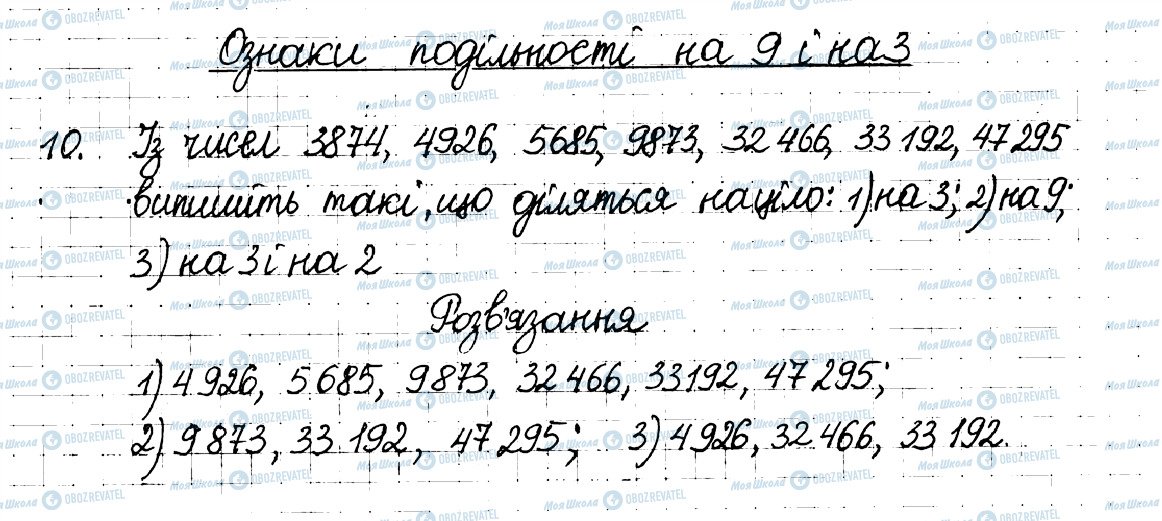 Ознаки подільності на 9 і на 3
10. Із чисел 3874, 4926, 5685, 9873, 32 466, 33 192, 47 295
випишіть такі, що діляться націло: 1) на 3; 2) на 9;
3) на 3 і на 2
Розв'язання
1) 4 926, 5 685, 9 873, 32 466, 33 192, 47 295;
2) 9 873, 33 192, 47 295; 3) 4 926, 32 466, 33 192.
Моя Школа OBOZREVATEL